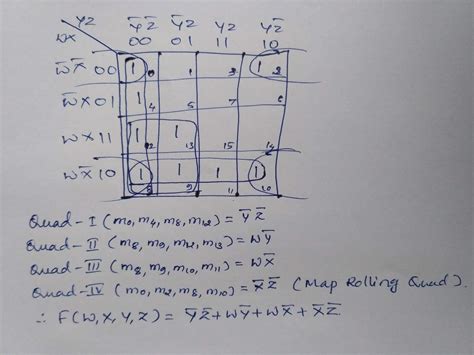 YZ
WX
Y̅Z̅ Y̅Z YZ YZ̅
00 01 11 10
W̅X̅ 00 1 0 1 3 1 2
W̅X 01 1 4 5 7 6
WX 11 1 12 1 13 15 14
WX̅ 10 1 8 1 9 1 11 1 10
Quad-I (m0, m4, m8, m12) = Y̅Z̅
Quad-II (m8, m9, m12, m13) = WY̅
Quad-III (m8, m9, m10, m11) = WX̅
Quad-IV (m0, m2, m8, m10) = X̅Z̅ (Map Rolling Quad).
∴ F(W,X,Y,Z) = Y̅Z̅ + WY̅ + WX̅ + X̅Z̅